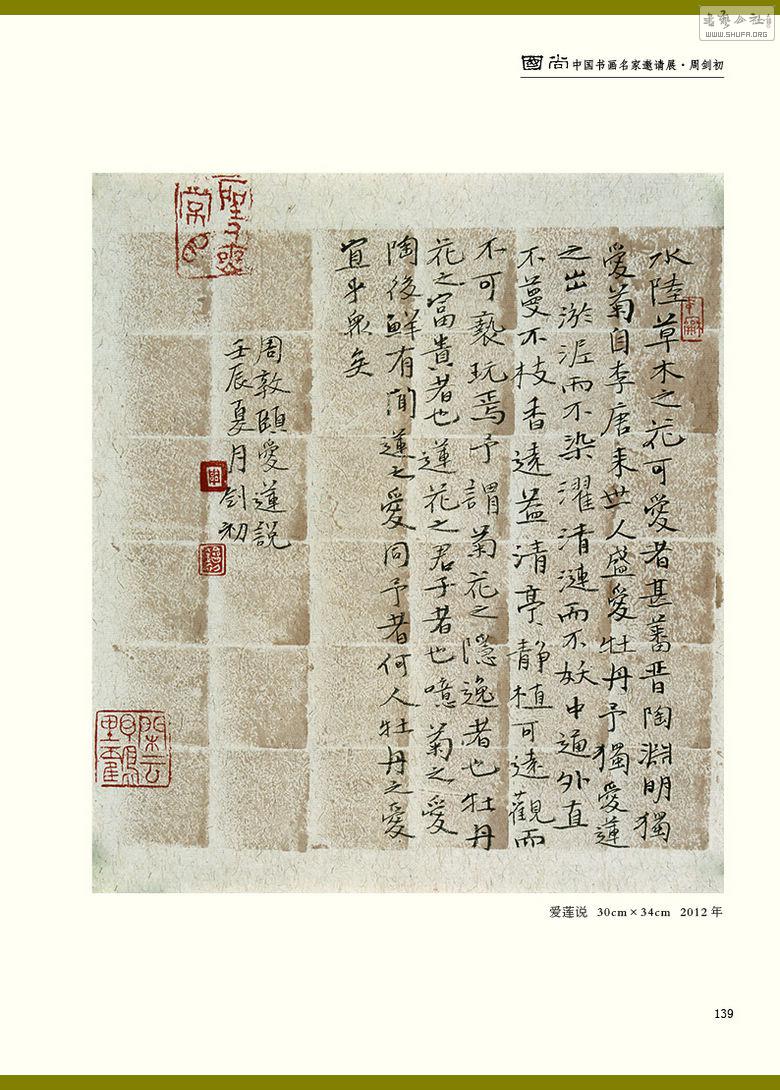 書藝公社
WWW.SHUFA.ORG
國尚 中国书画名家邀请展·周剑初
水陸草木之花可愛者甚蕃晋陶淵明獨
愛菊自李唐来世人盛愛牡丹予獨愛蓮
之出淤泥而不染濯清漣而不妖中通外直
不蔓不枝香遠益清亭〻静植可遠觀而
不可褻玩焉予謂菊花之隱逸者也牡丹
花之富貴者也蓮花之君子者也噫菊之愛
陶後鮮有聞蓮之愛同予者何人牡丹之愛
宜乎衆矣
周敦頤愛蓮説
壬辰夏月剑初
爱莲说 30cm×34cm 2012年
139